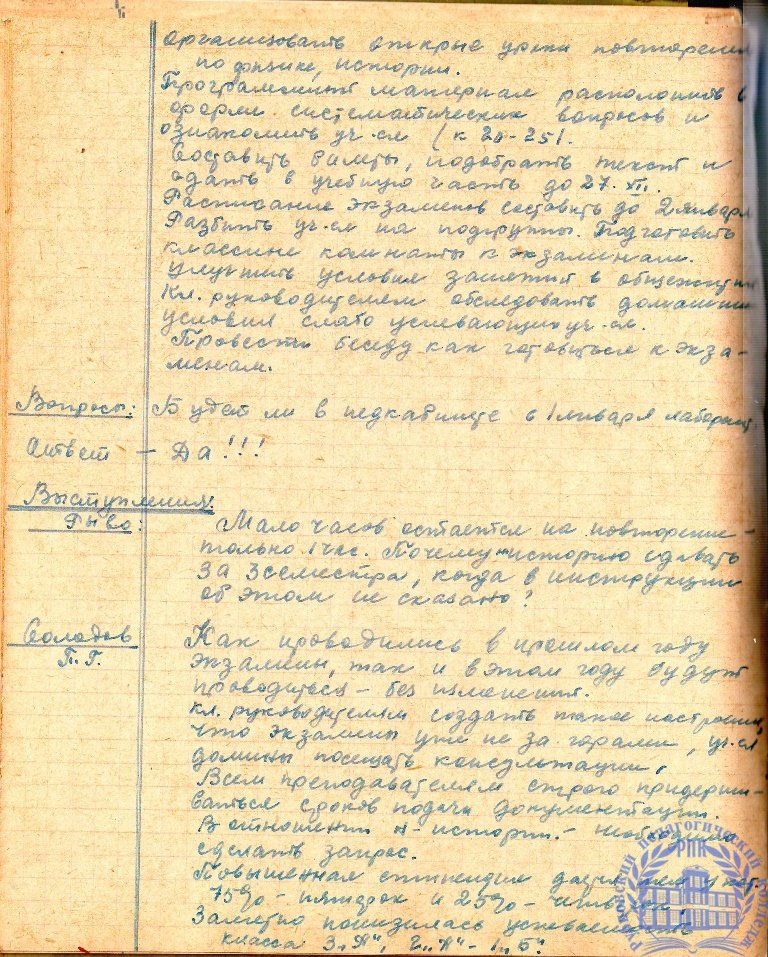 организовать открые уроки повторения
по физике, истории.
Програмный материал расположить в
форме систематических вопросов и
ознакомить уч-ся (к 20-25).
Составить билеты, подобрать текст и
сдать в учебную часть до 27.XII.
Расписание экзаменов составить до 2 января
Разбить уч-ся на подгруппы. Подготовить
классные комнаты к экзаменам.
Улучшить условия занятий в общежитии
Кл. руководителям обследовать домашние
условия слабо успевающих уч-ся.
Провести беседу как готовиться к экза-
менам.
Вопросы: Будет ли в педкабинете с 1 января лаборант.
Ответ - Да!!!
Выступления:
Мало часов остается на повторение -
только 1 час. Почему историю сдавать
за 3 семестра, когда в инструкции
об этом не сказано?
Солодов Как проводились в прошлом году
П.Г. экзамены, так и в этом году будут
проводиться - без изменений.
кл. руководителям создать такое настроение,
что экзамены уже не за горами, уч-ся
должны посещать консультации,
Всем преподавателям строго придержи-
ваться сроков подачи документации.
В отношении истории - необходимо
сделать запрос.
Повышенная стипендия дается
75% - пятерок и 25% -
Заметно понизилась успеваемость
класса 3 „А", 2 „А" - 1 „Б".
педагогический колледж
РПК